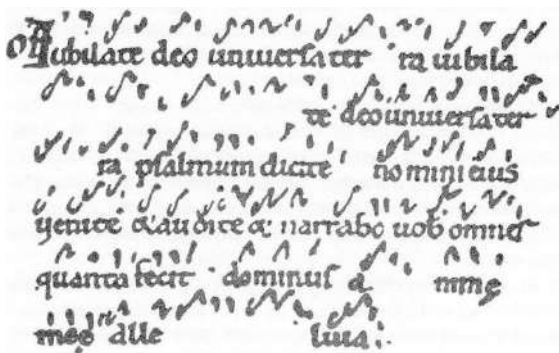 Of Iubilate deo universa ter ra iubila
te deo universa ter
ra psalmum dicite nomini eius
venite & audite & narrabo uob omnes
quanta fecit dominus a nime
meę alle luia.